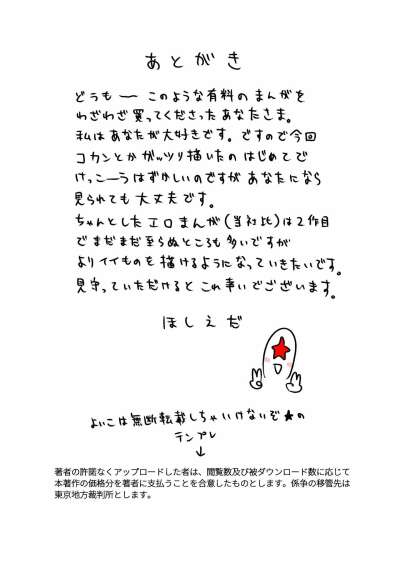 あとがき
どうも〜 このような有料のまんがを
わざわざ買ってくださったあなたさま。
私はあなたが大好きです。ですので今回
コカンとかガッツリ描いたのはじめてで
けっこーうはずかしいのですがあなたになら
見られても大丈夫です。
ちゃんとしたエロまんが(当社比)は2作目
でまだまだ至らぬところも多いですが
よりイイものを描けるようになっていきたいです。
見守っていただけるとこれ幸いでございます。
ほしえだ
よいこは無断転載しちゃいけないぞ★の
テンプレ
↓
著者の許諾なくアップロードした者は、閲覧数及び被ダウンロード数に応じて
本著作の価格分を著者に支払うことを合意したものとします。係争の移管先は
東京地方裁判所とします。